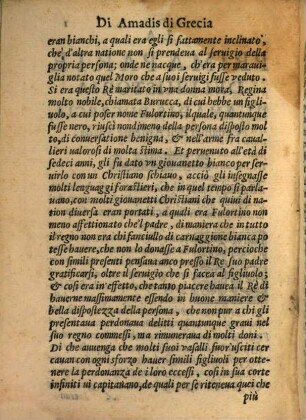 Di Amadis di Grecia
eran bianchi, a quali era egli sì fattamente inclinato,
che d'altra natione non si prendeua al seruigio della
propria persona; onde ne nacque, ch'era per maraui-
glia notato quel Moro che a suoi seruigi fusse veduto.
Si era questo Rè maritato in vna donna mora, Regina
molto nobile, chiamata Burucca, di cui hebbe un figli-
uolo, a cui poser nome Fulortino, il quale, quantunque
fusse nero, riuscì nondimeno della persona disposto mol
to, di conuersatione benigna, & nell'arme fra caual-
lieri ualorosi di molta stima. Et peruenuto all'età di
sedeci anni, gli fu dato vn giouanetto bianco per ser-
uirlo con un Christiano schiauo, acciò gli insegnasse
molti lenguaggi forastieri, che in quel tempo si parla-
uano, con molti giouanetti Christiani che quiui di na-
tion diuersa eran portati, a quali era Fulortino non
meno affettionato che'l padre, di maniera che in tutto
il regno non era chi fanciullo di carnaggione bianca po
tesse hauere, che non lo donasse a Fulortino, percioche
con simili presenti pensaua anco presso il Re suo padre
gratificarsi, oltre il seruigio che si facea al figliuolo;
& così era in'effetto, che tanto piacere hauea il Rè di
hauerne massimamente essendo in buone maniere &
bella dispostezza della persona, che non pur a chi gli
presentaua perdonaua delitti quantunque graui nel
suo regno commessi, ma rimuneraua di molti doni.
Di che auuenga che molti suoi vassalli suor'usciti cer
cauan con ogni sforzo hauer simili figliuoli per otte-
nere la perdonanza de i loro eccessi, così in sua corte
infiniti ui capitauano, de quali per se riteneua quei che
più